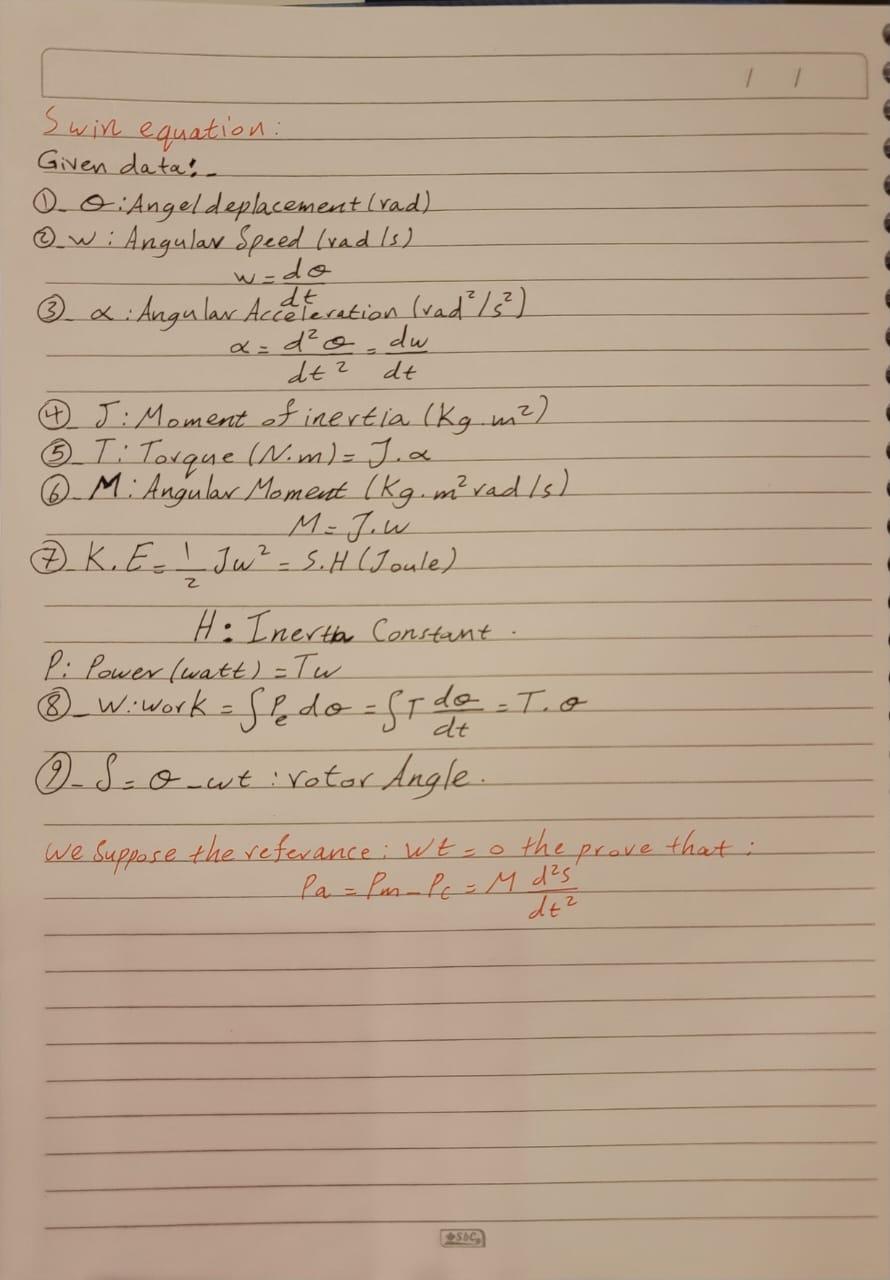 / /
Swin equation:
Given data:-
①- θ: Angel deplacement (rad)
②- w: Angular Speed (rad/s)
w = dθ/dt
③- α: Angular Acceleration (rad²/s²)
α = d²θ/dt² = dw/dt
④- J: Moment of inertia (Kg.m²)
⑤- T: Torque (N.m) = J.α
⑥- M: Angular Moment (Kg.m² rad/s)
M = J.w
⑦- K.E = 1/2 Jw² = S.H (Joule)
H: Inertia Constant.
P: Power (watt) = Tw
⑧- W: work = ∫Pe dθ = ∫T dθ/dt = T.θ
⑨- δ = θ - wt : rotor Angle.
We Suppose the referance: wt = 0 the prove that:
Pa = Pm - Pe = M d²δ/dt²
SbC